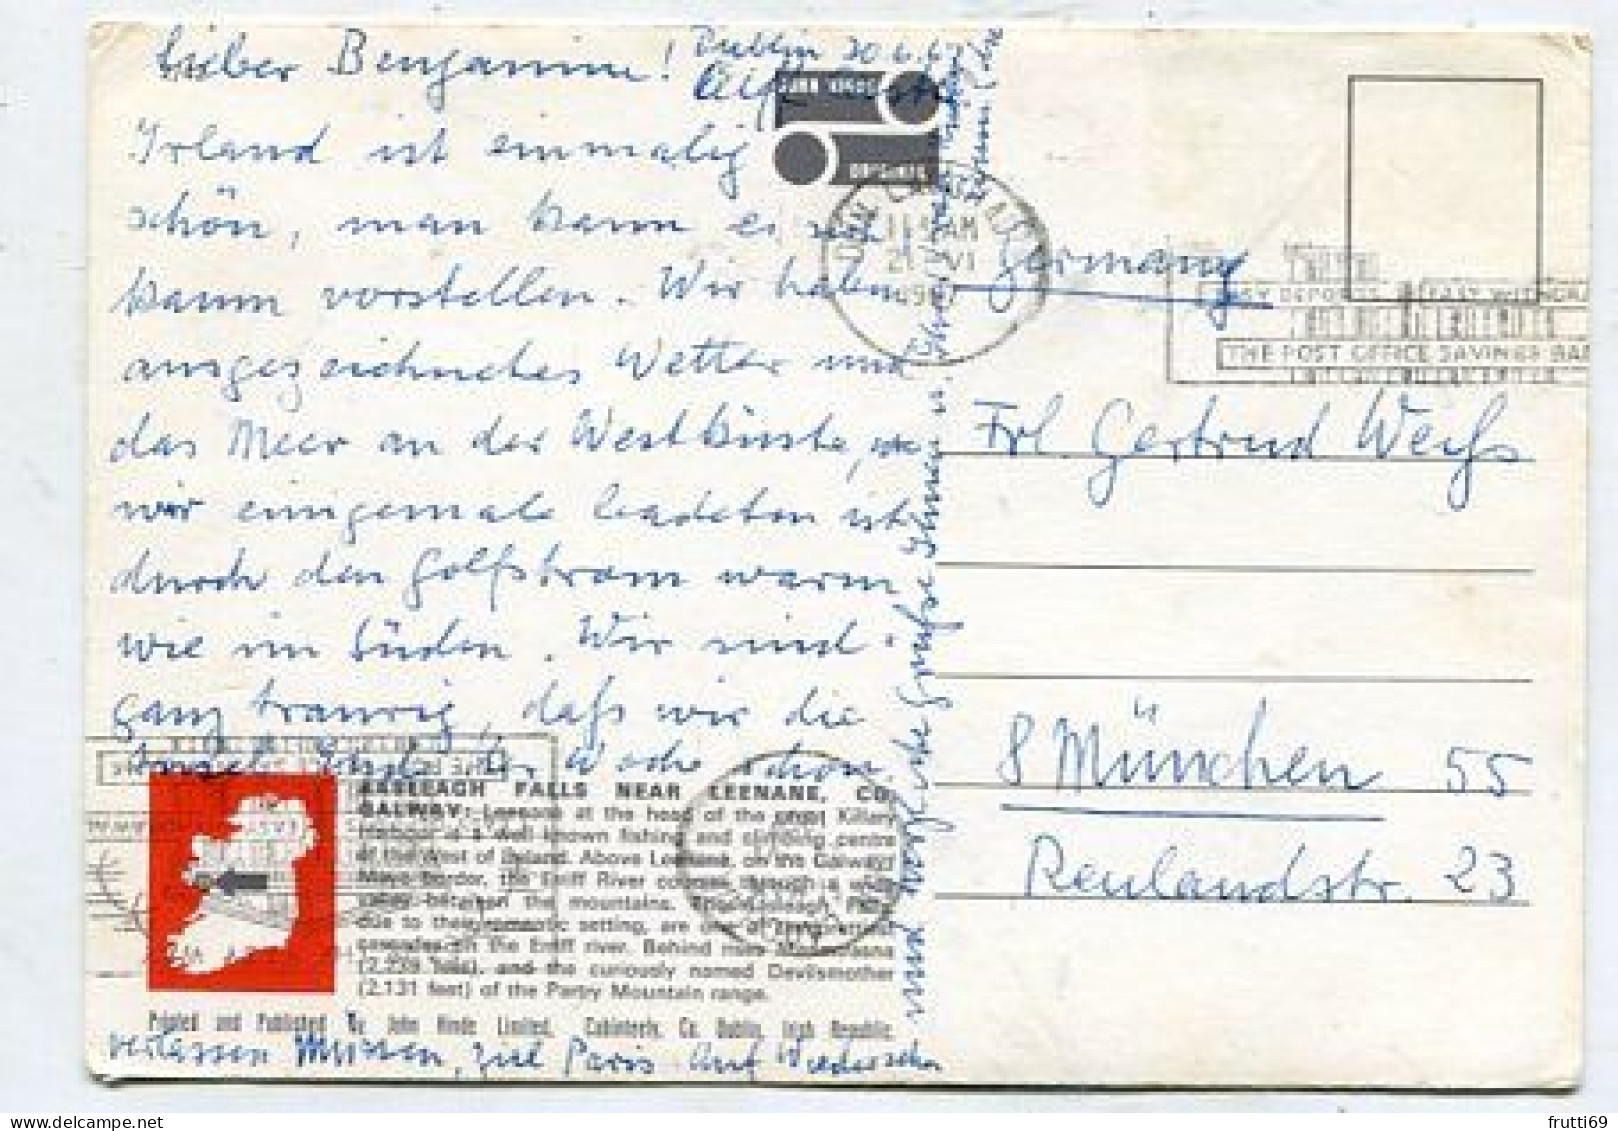 Lieber Benjamin! Dublin 20.6.67
Irland ist einmalig
schön, man kann es
kaum vorstellen. Wir haben
ausgezeichnetes Wetter und
das Meer an der Westküste, wo
wir einigemale badeten ist
durch den Golfstrom warm
wie im Süden. Wir sind
ganz traurig, daß wir die
Insel Ende der Woche schon
verlassen müssen, Ziel Paris. Auf Wiedersehen
herzliche Grüße Ihnen u.
JOHN HINDE
11 AM
VI
1967
Germany
THE POST OFFICE SAVINGS BA
Frl. Gertrud Weiß
8 München 55
Reulandstr. 23
AASLEAGH FALLS NEAR LEENANE, CO.
GALWAY: Leenane at the head of the great Killary
Harbour is a well-known fishing and climbing centre
of the West of Ireland. Above Leenane, on the Galway/
Mayo border, the Erriff River courses through a wide
valley between the mountains. The Aasleagh Falls,
due to their romantic setting, are one of
cascades on the Erriff river. Behind rises
(2,239 feet), and the curiously named Devilsmother
(2,131 feet) of the Partry Mountain range.
Printed and Published by John Hinde Limited, Cabinteely, Co. Dublin, Irish Republic.
frutti69